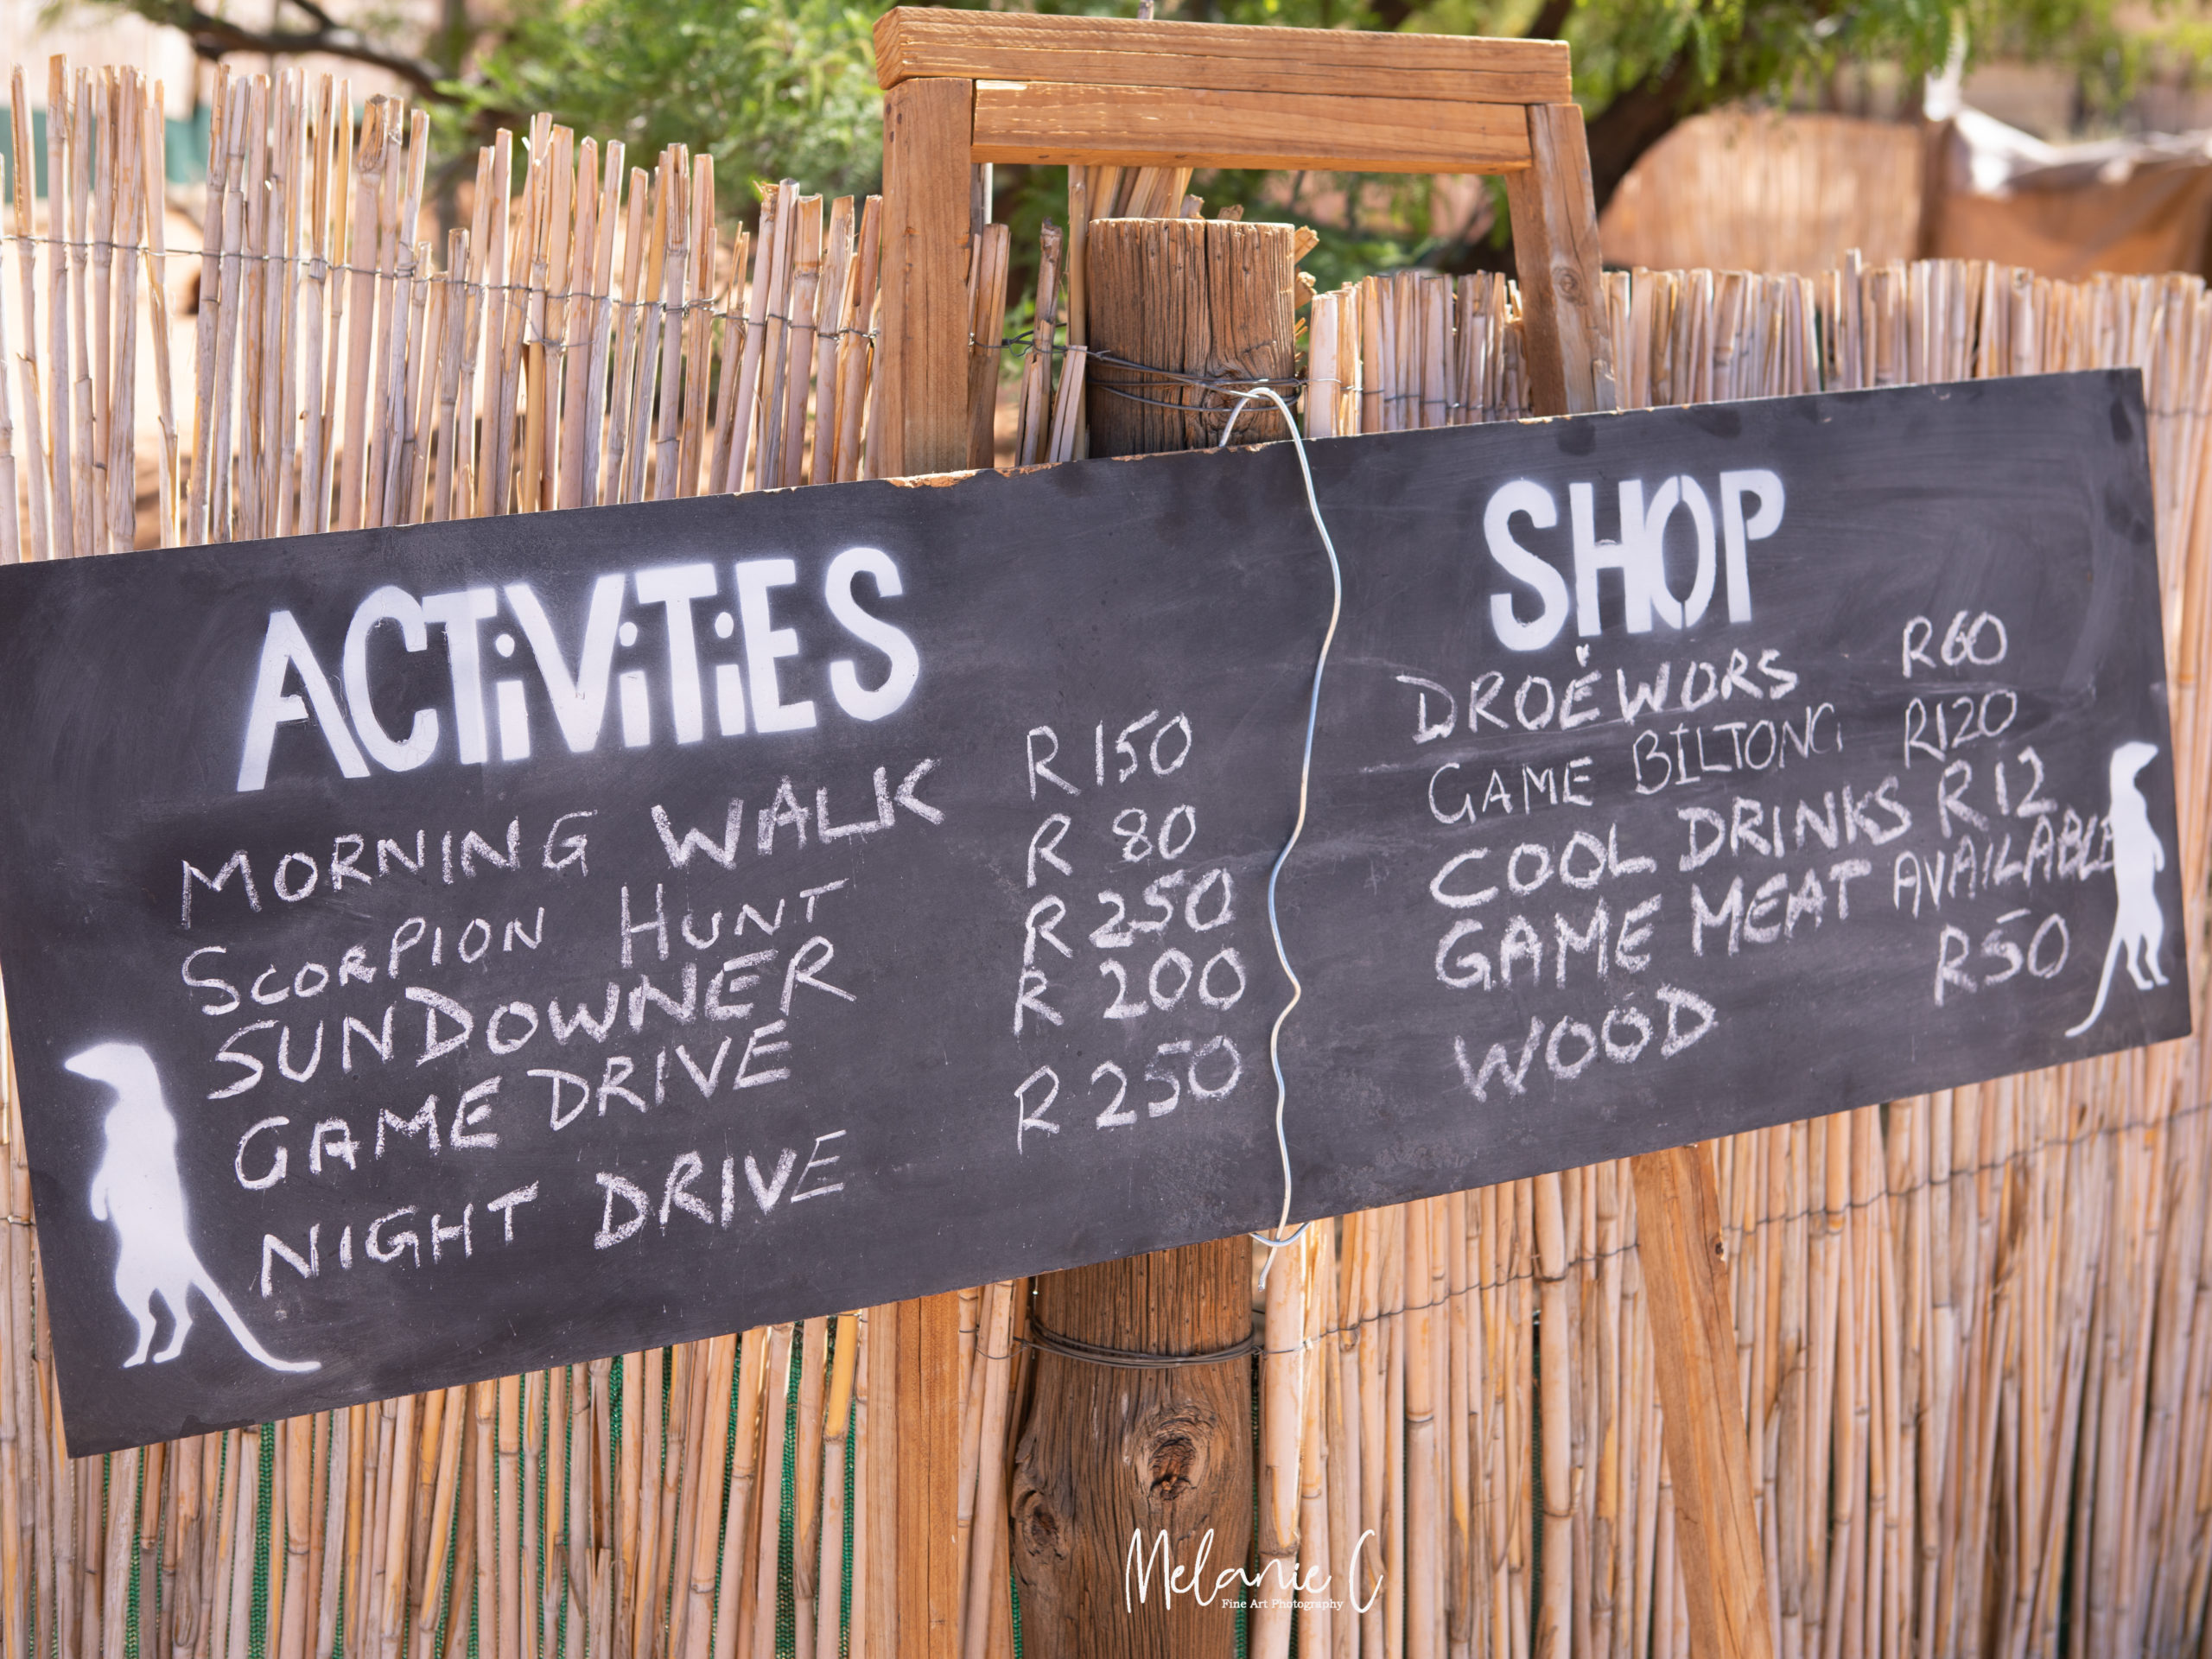 ACTiViTiES
MORNING WALK R150
SCORPION HUNT R 80
SUNDOWNER R 250
GAME DRIVE R 200
NIGHT DRIVE R 250
SHOP
DROËWORS R60
GAME BILTONG R120
COOL DRINKS R12
GAME MEAT AVAILABLE
WOOD R50
Melanie C
Fine Art Photography